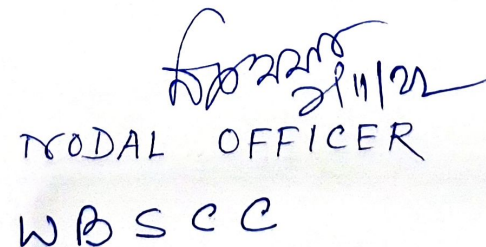 2/11/22
NODAL OFFICER
WBSCC